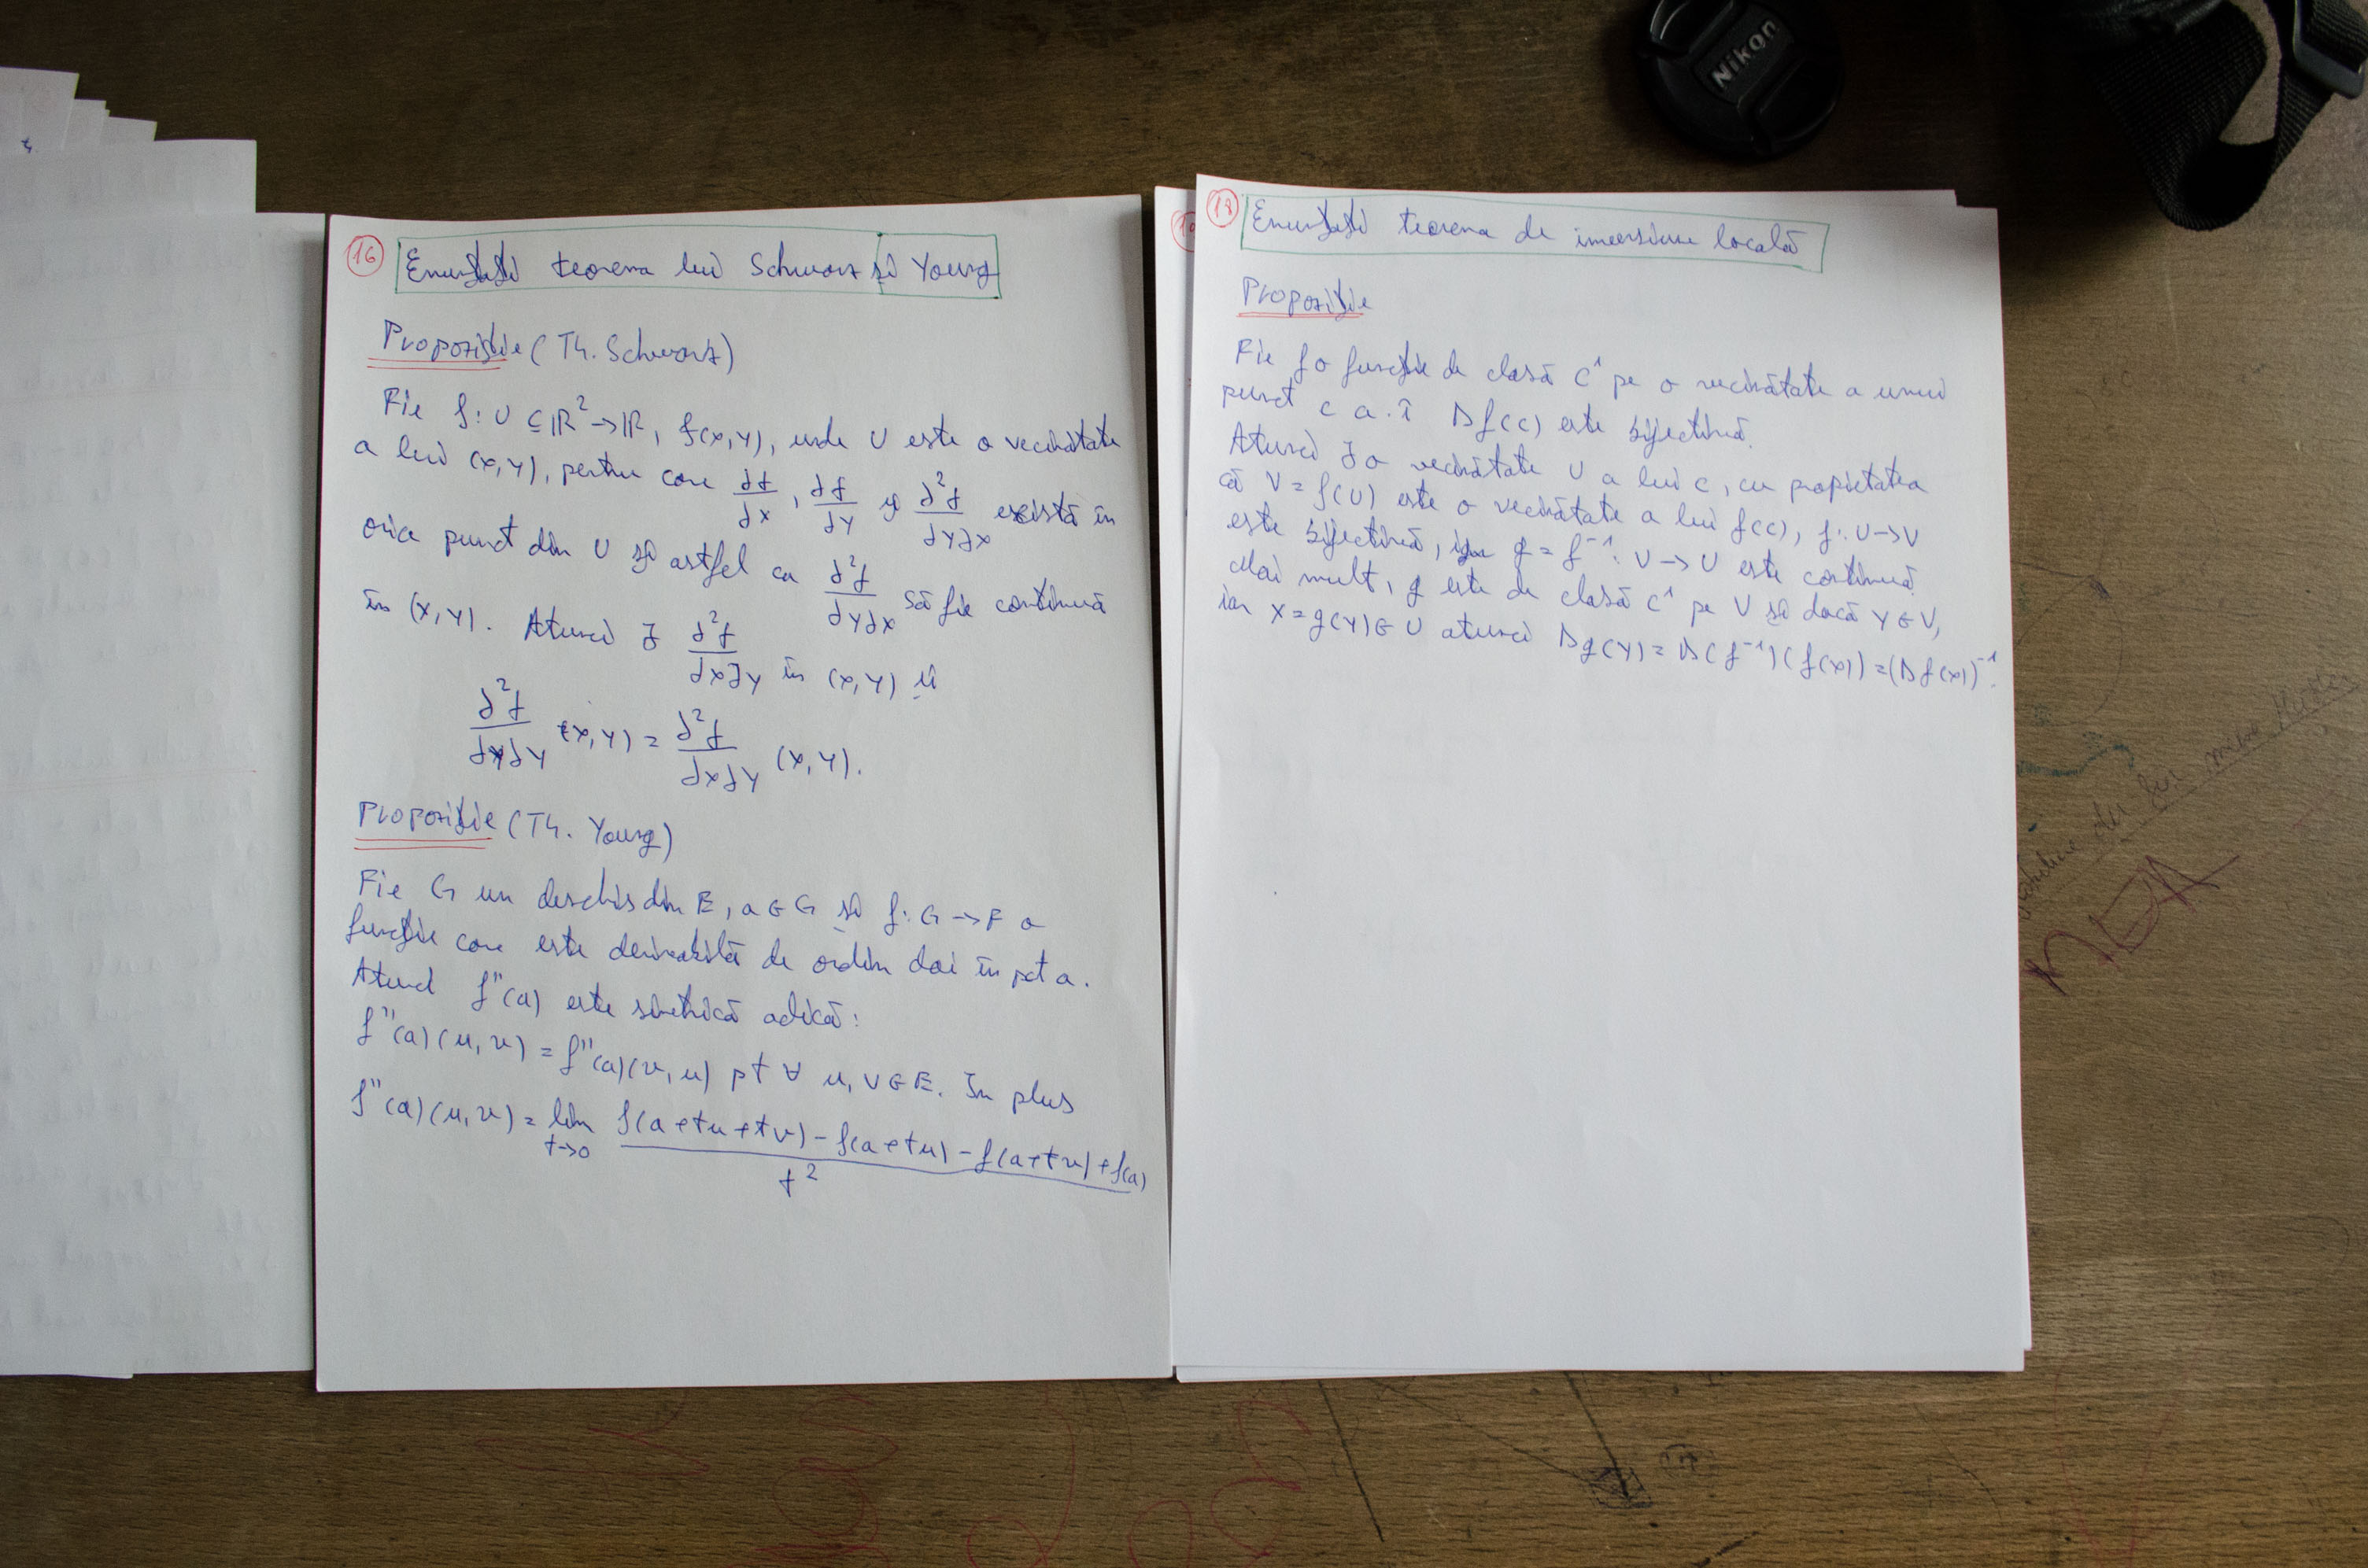 Nikon
16
Enunțați teorema lui Schwarz și Young
Propoziție (Th. Schwarz)
Fie f: U ⊆ ℝ² → ℝ, f(x,y), unde U este o vecinătate
a lui (x,y), pentru care ∂f/∂x, ∂f/∂y și ∂²f/∂y∂x există în
orice punct din U și astfel ca ∂²f/∂y∂x să fie continuă
în (x,y). Atunci ∃ ∂²f/∂x∂y în (x,y) și
∂²f/∂x∂y (x,y) = ∂²f/∂x∂y (x,y).
Propoziție (Th. Young)
Fie G un deschis din E, a∈G și f: G → F o
funcție care este derivabilă de ordin doi în pct a.
Atunci f''(a) este simetrică adică:
f''(a)(u,v) = f''(a)(v,u) pt ∀ u,v∈E. În plus
f''(a)(u,v) = lim t→0 (f(a+tu+tv) - f(a+tu) - f(a+tv) + f(a)) / t²
18
Enunțați teorema de inversiune locală
Propoziție
Fie f o funcție de clasă C¹ pe o vecinătate a unui
punct c a.î Df(c) este bijectivă.
Atunci ∃ o vecinătate U a lui c, cu propietatea
că V = f(U) este o vecinătate a lui f(c), f: U→V
este bijectivă, iar g = f⁻¹: V → U este continuă.
Mai mult, g este de clasă C¹ pe V și dacă y∈V,
iar x = g(y) ∈ U atunci Dg(y) = D(f⁻¹)(f(x)) = (Df(x))⁻¹.